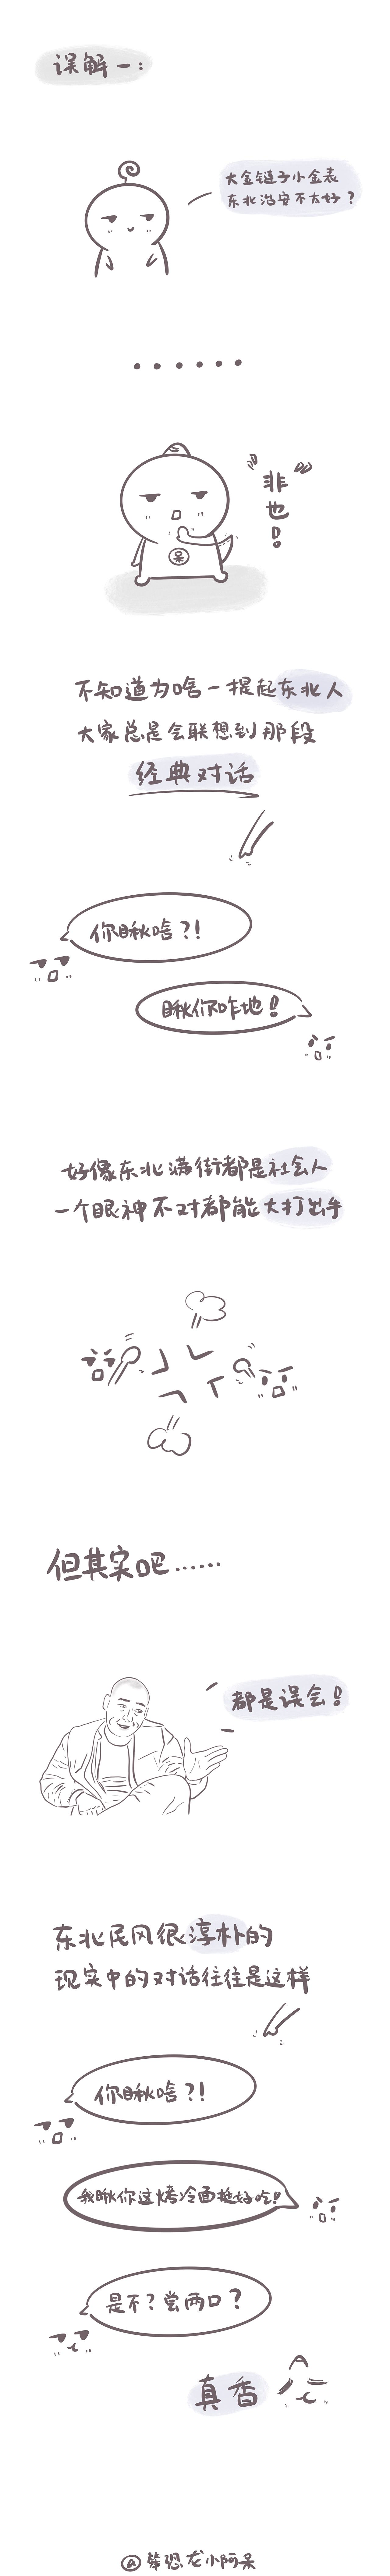 误解一：
大金链子小金表
东北治安不太好？
......
非也！
呆
不知道为啥一提起东北人
大家总是会联想到那段
经典对话
你瞅啥？！
瞅你咋地！
好像东北满街都是社会人
一个眼神不对都能大打出手
但其实吧......
都是误会！
东北民风很淳朴的
现实中的对话往往是这样
你瞅啥？！
我瞅你这烤冷面挺好吃！
是不？尝两口？
真香
@笨恐龙小阿呆